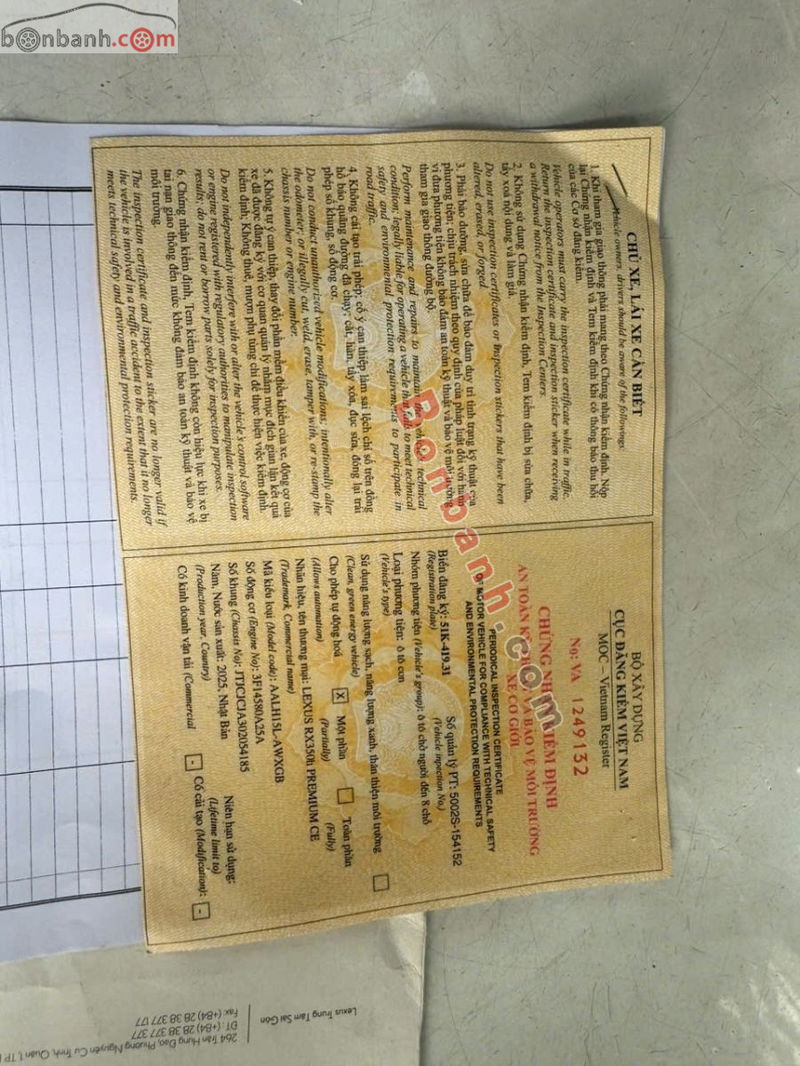 bonbanh.com
CHỦ XE, LÁI XE CẦN BIẾT
Vehicle owners, drivers should be aware of the followings:
1. Khi tham gia giao thông phải mang theo Chứng nhận kiểm định. Nộp
lại Chứng nhận kiểm định và Tem kiểm định khi có thông báo thu hồi
của các Cơ sở đăng kiểm.
Vehicle operators must carry the inspection certificate while in traffic.
Return the inspection certificate and inspection sticker when receiving
a withdrawal notice from the Inspection Centers.
2. Không sử dụng Chứng nhận kiểm định, Tem kiểm định bị sửa chữa,
tẩy xoá nội dung và làm giả.
Do not use inspection certificates or Inspection stickers that have been
altered, erased, or forged.
3. Phải bảo dưỡng, sửa chữa để bảo đảm duy trì tình trạng kỹ thuật của
phương tiện; chịu trách nhiệm theo quy định của pháp luật đối với hành
vi đưa phương tiện không bảo đảm an toàn kỹ thuật và bảo vệ môi trường
tham gia giao thông đường bộ.
Perform maintenance and repairs to maintain the vehicle's technical
condition; legally liable for operating a vehicle that fails to meet technical
safety and environmental protection requirements to participate in
road traffic.
4. Không cải tạo trái phép; cố ý can thiệp làm sai lệch chỉ số trên đồng
hồ báo quãng đường đã chạy; cắt, hàn, tẩy xóa, đục sửa, đóng lại trái
phép số khung, số động cơ.
Do not conduct unauthorized vehicle modifications; intentionally alter
the odometer; or illegally cut, weld, erase, tamper with, or re-stamp the
chassis number or engine number.
5. Không tự ý can thiệp, thay đổi phần mềm điều khiển của xe, động cơ của
xe đã được đăng ký với cơ quan quản lý nhằm mục đích gian lận kết quả
kiểm định; Không thuê, mượn phụ tùng chỉ để thực hiện việc kiểm định
Do not independently interfere with or alter the vehicle's control software
or engine registered with regulatory authorities to manipulate inspection
results; do not rent or borrow parts solely for inspection purposes.
6. Chứng nhận kiểm định, Tem kiểm định không còn hiệu lực khi xe bị
tai nạn giao thông đến mức không đảm bảo an toàn kỹ thuật và bảo vệ
môi trường.
The inspection certificate and inspection sticker are no longer valid if
the vehicle is involved in a traffic accident to the extent that it no longer
meets technical safety and environmental protection requirements.
BỘ XÂY DỰNG
CỤC ĐĂNG KIỂM VIỆT NAM
MOC – Vietnam Register
No: VA 1249132
CHỨNG NHẬN KIỂM ĐỊNH
AN TOÀN KỸ THUẬT VÀ BẢO VỆ MÔI TRƯỜNG
XE CƠ GIỚI
PERIODICAL INSPECTION CERTIFICATE
OF MOTOR VEHICLE FOR COMPLIANCE WITH TECHNICAL SAFETY
AND ENVIRONMENTAL PROTECTION REQUIREMENTS
Biển đăng ký: 51K-419.31 Số quản lý PT: 5002S-154152
(Registration plate) (Vehicle inpection No.)
Nhóm phương tiện (Vehicle's group): ô tô chở người đến 8 chỗ
Loại phương tiện: ô tô con
(Vehicle's type)
Sử dụng năng lượng sạch, năng lượng xanh, thân thiện môi trường
(Clean, green energy vehicle)
Cho phép tự động hoá X Một phần Toàn phần
(Allows automation) (Partially) (Fully)
Nhãn hiệu, tên thương mại: LEXUS RX350h PREMIUM CE
(Trademark, Commercial name)
Mã kiểu loại (Model code): AALH15L-AWXGB
Số động cơ (Engine No): 3F14580A25A
Số khung (Chassis No): JTJCJCJA302054185
Năm, Nước sản xuất: 2025, Nhật Bản Niên hạn sử dụng:
(Production year, Country) (Lifetime limit to)
Có kinh doanh vận tải (Commercial - Có cải tạo (Modification): -
Bonbanh.com
Lexus Trung Tâm Sài Gòn
264 Trần Hưng Đạo, Phường Nguyễn Cư Trinh, Quận 1, TP
ĐT: (+84) 28 38 377 377
Fax: (+84) 28 38 377 177